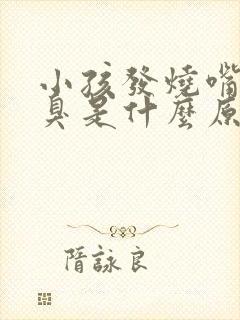 小孩發燒嘴
臭是什麼原
隋詠良